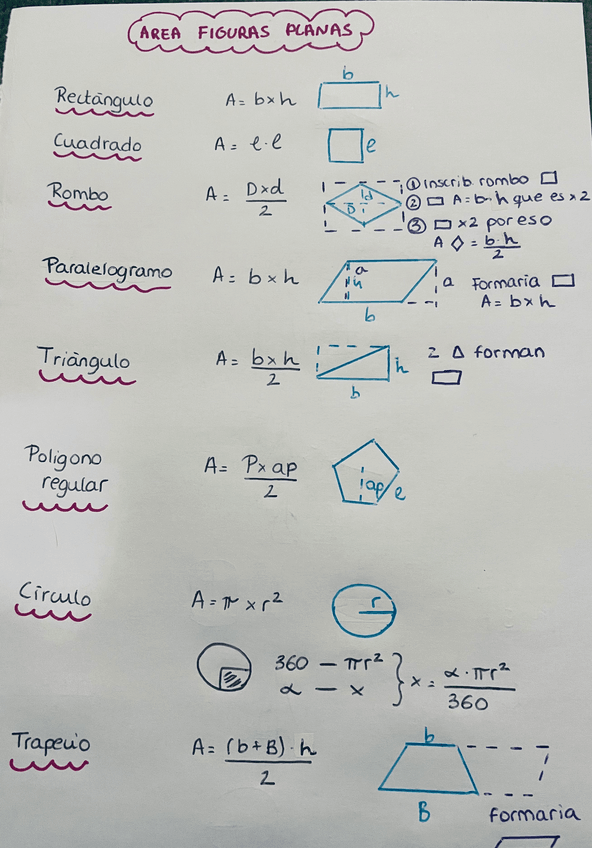 AREA FIGURAS PLANAS
Rectángulo A = b x h b h
Cuadrado A = l · l e
Rombo A = D x d / 2 D d
① Inscrib rombo ▭
② ▭ A = b · h que es x2
③ ▭ x2 por eso
A ◇ = b · h / 2
Paralelogramo A = b x h a h b a
Formaria ▭
A = b x h
Triángulo A = b x h / 2 h b
2 △ forman
▭
Poligono
regular A = P x ap / 2 ap e
Círculo A = π x r² r
360 — πr²
α — x } x = α · πr² / 360
Trapecio A = (b + B) · h / 2 b B
formaria